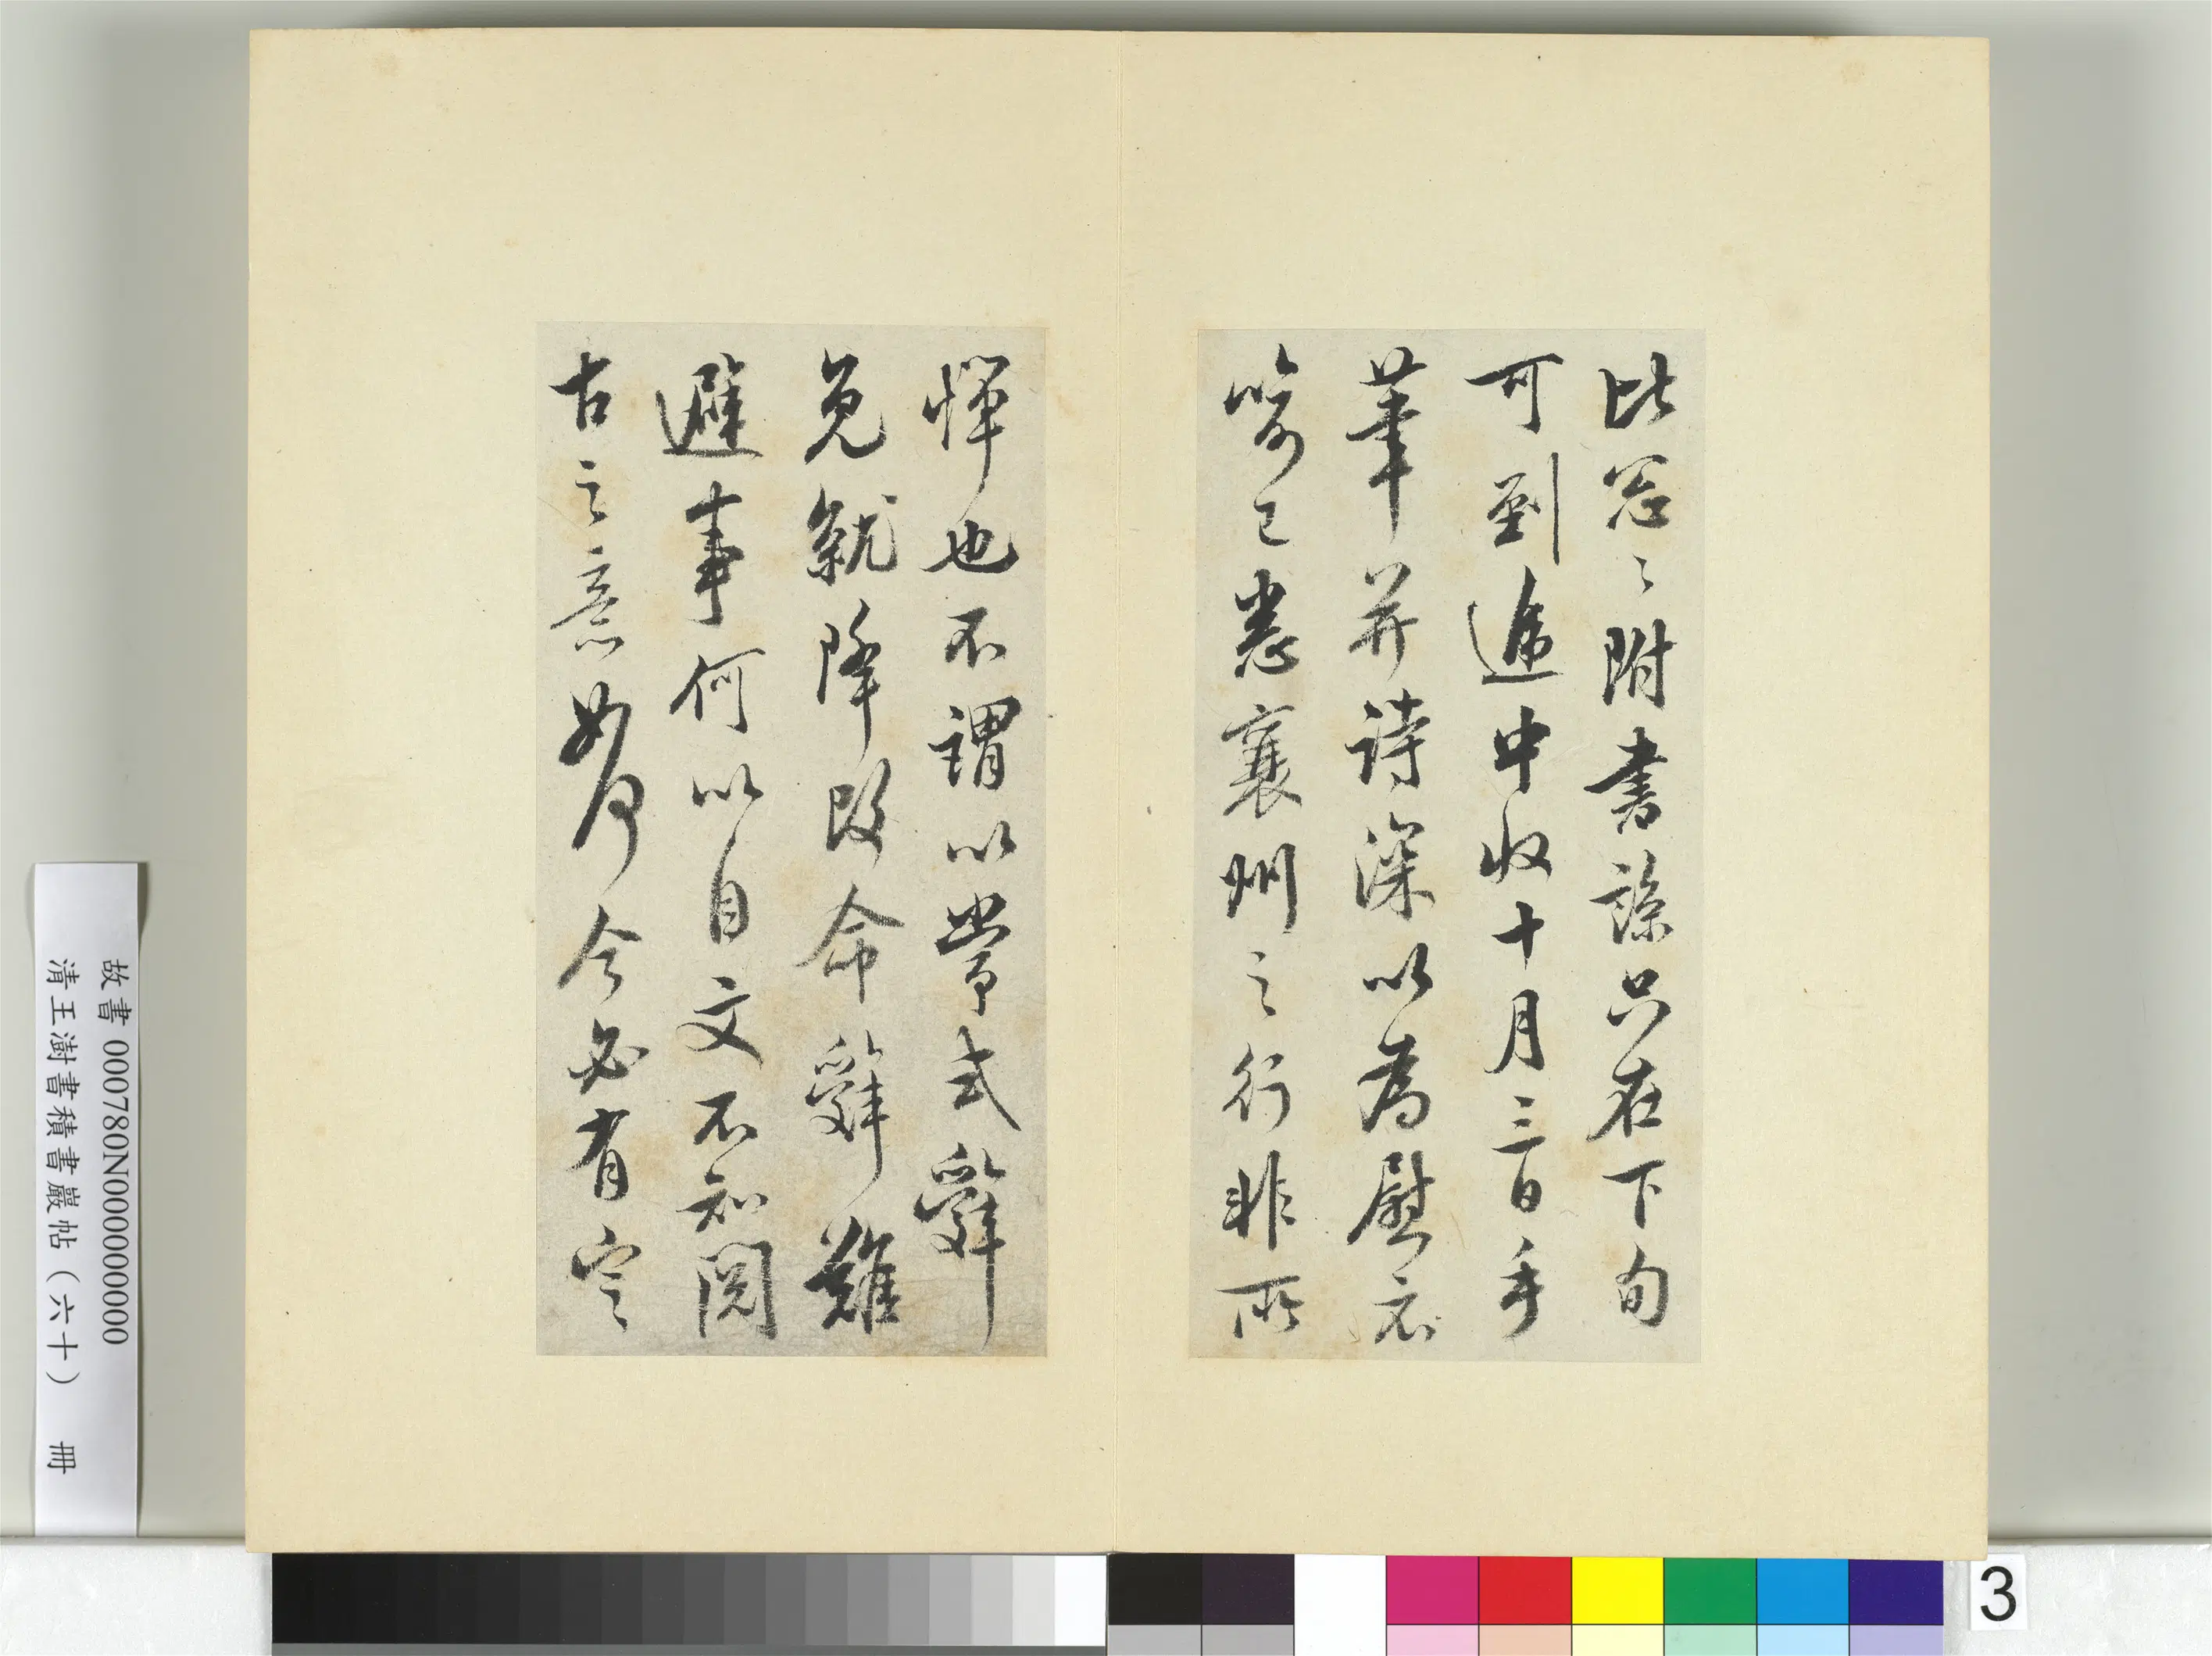 比怱〻附書諒只在下旬
可到遞中收十月三日手
筆并詩深以為慰示
喻已悉襄州之行非所
憚也不謂以常式辭
免就降改命辭難
避事何以自文不知閱
古之意如何今必有定
故書 000780N000000000
清王澍書積書巖帖(六十) 冊
3